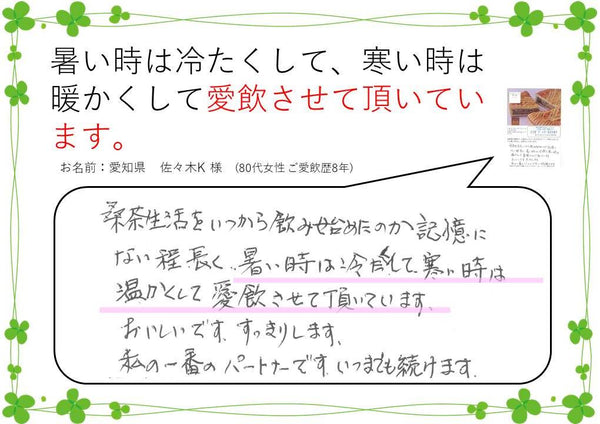 暑い時は冷たくして、寒い時は
暖かくして愛飲させて頂いてい
ます。
お名前：愛知県　佐々木K 様　(80代女性 ご愛飲歴8年)
桑茶生活をいつから飲み始めたのか記憶に
ない程、長く、暑い時は冷たくして、寒い時は
温かくして愛飲させて頂いています。
おいしいです。すっきりします。
私の一番のパートナーです。いつまでも続けます。